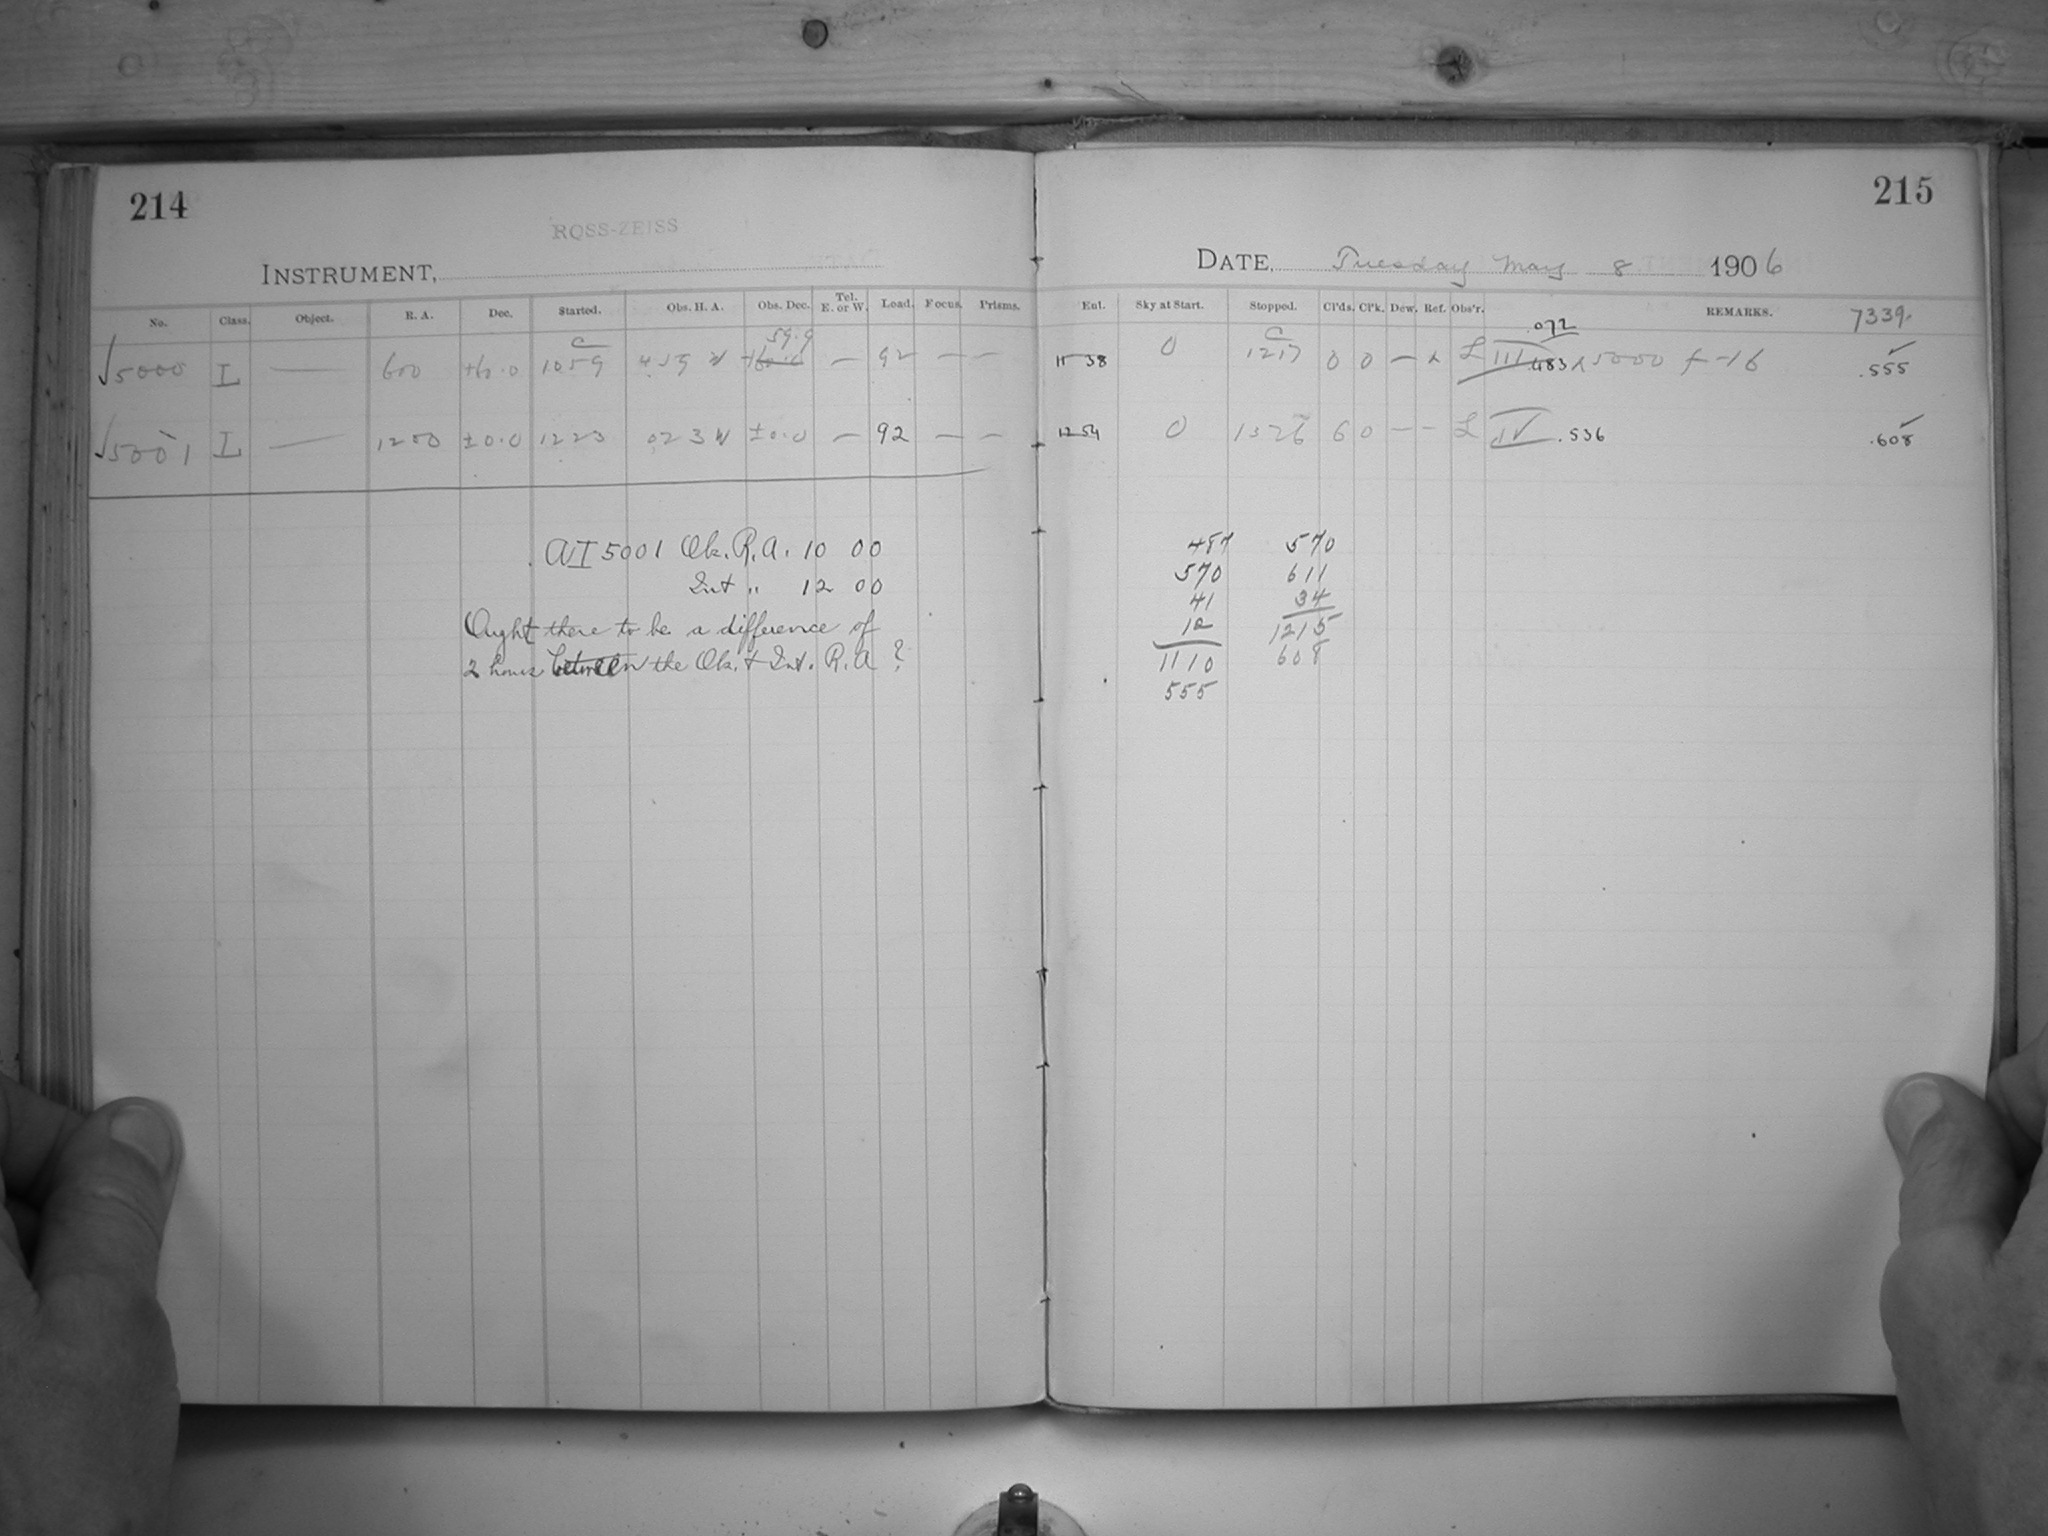 214
ROSS-ZEISS
INSTRUMENT,
No. Class. Object. R. A. Dec. Started. Obs. H. A. Obs. Dec. Tel. E. or W. Lead. Focus. Prisms.
59.9
√5000 I — 600 +60.0 1059 459 W +60.0 — 92 — —
√5001 I — 1200 ±0.0 1223 023 W ±0.0 — 92 — —
AI 5001 Ob. R.A. 10 00
Int " 12 00
Ought there to be a difference of
2 hours between the Ob. & Int. R.A ?
215
DATE, Tuesday May 8 1906
Sky at Start. Stopped. Cl'ds. Cl'k. Dew. Ref. Obs'r. REMARKS. 7339.
.072
11 38 0 1217 0 0 — L III .483 5000 f -16 .555
12 54 0 1326 6 0 — — L IV .536 .608
487 570
570 611
41 34
12 1215
1110 608
555